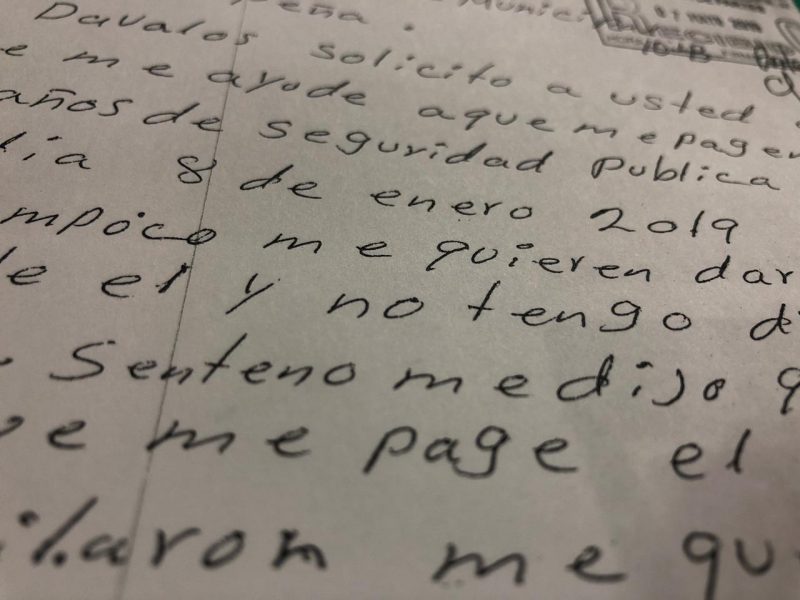 Peña. Munici
Davalos solicito a usted
e me ayude aque me pagen
años de seguridad publica
ia 8 de enero 2019
mpoco me quieren dar
de el y no tengo di
Senteno me dijo q
e me page el
ilaron me qu